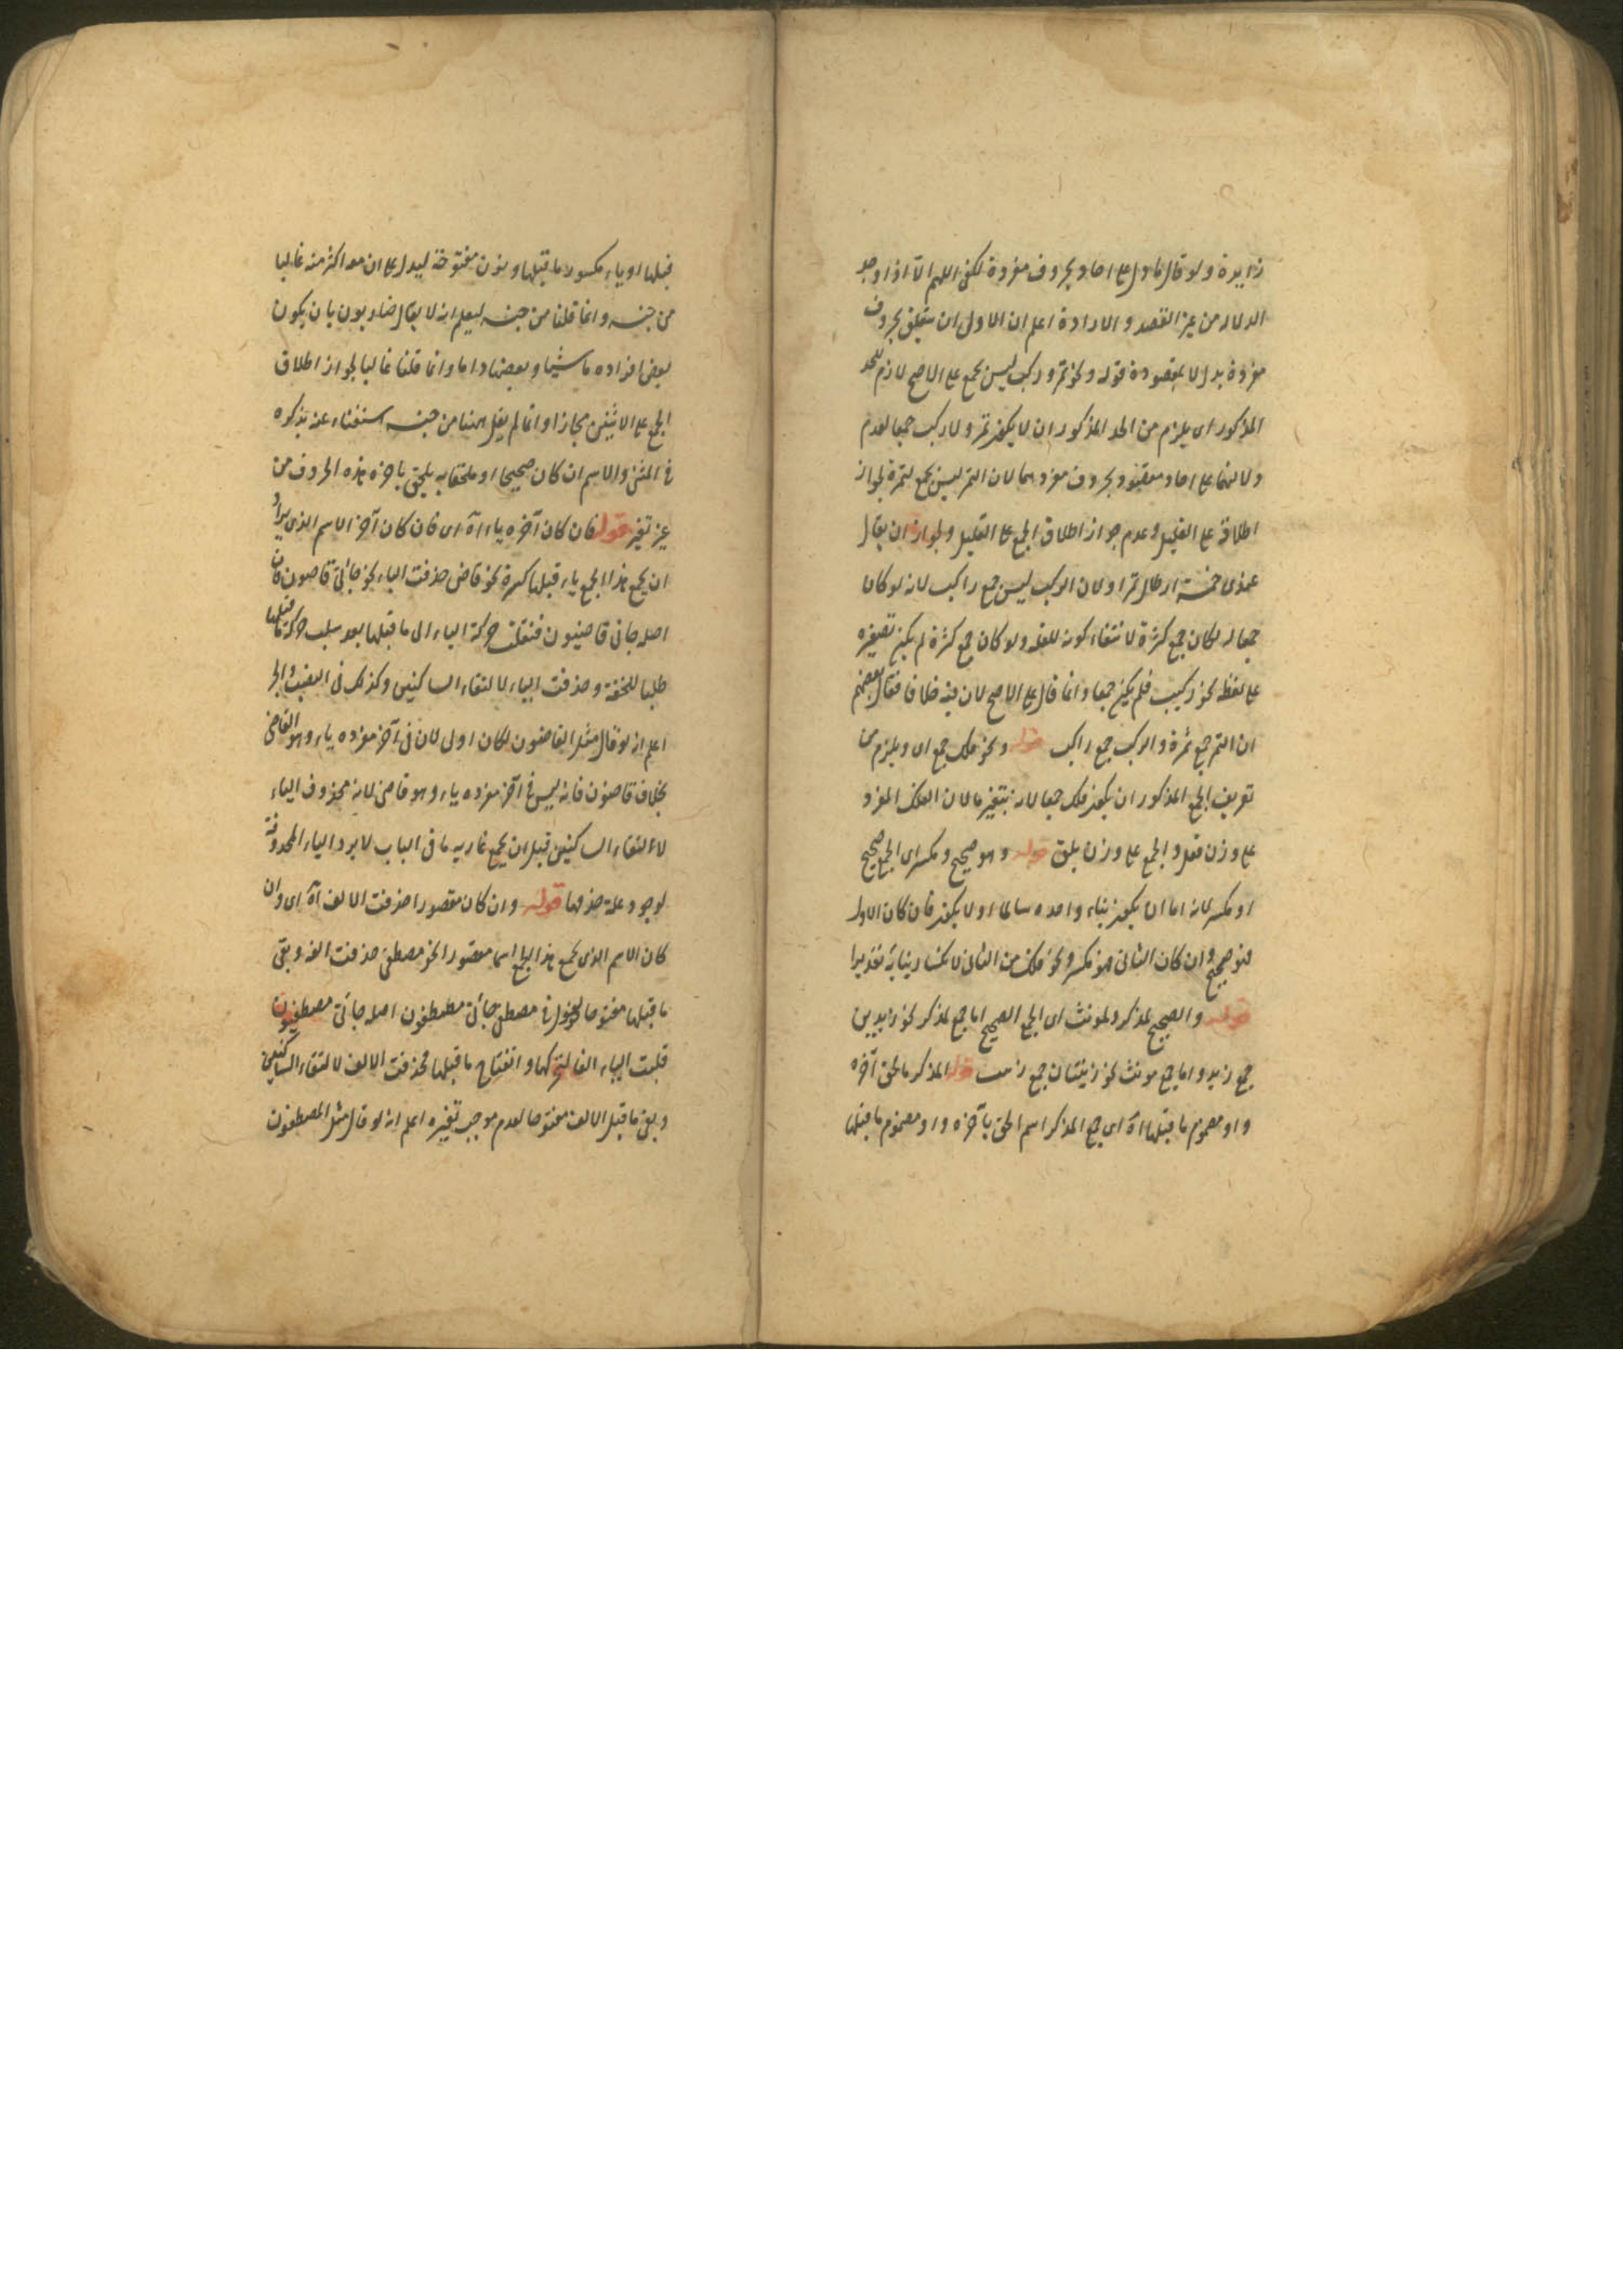 زايدة ولو قال ما دل على احاد بحروف مفردة لكفى اللهم الا اذا وجد
الدلالة من غير القصد والارادة اعلم ان الاولى ان يتعلق بحروف
مفردة بدل لا بمقصودة قوله ونحو تمر وركب ليس بجمع على الاصح لازم للحد
المذكور اى يلزم من الحد المذكور ان لا يكون تمر ولا ركب جمعا لعدم
دلالتهما على احاد مقصود بحروف مفردهما لان التمر ليس بجمع لتمرة لجواز
اطلاقه على القليل وعدم جواز اطلاق الجمع على القليل ولجواز ان يقال
عندى خمسة ارطال تمرا ولان الركب ليس جمع راكب لانه لو كان
جمعا له لكان جمع كثرة لانتفاء كونه للقلة ولو كان جمع كثرة لم يكن تصغيره
على لفظه نحو ركيب فلم يكن جمعا وانما قال على الاصح لان فيه خلافا فقال بعضهم
ان التمر جمع تمرة والركب جمع راكب قوله ونحو فلك جمع اى ويلزم من
تعريف الجمع المذكور ان يكون فلك جمعا لانه بتغير ما لان الفلك المفرد
على وزن قفل والجمع على وزن قوله وهو صحيح ومكسر اى الجمع صحيح
او مكسر لانه اما ان يكون بناء واحده سالما او لا يكون فان كان الاول
فهو صحيح وان كان الثانى فهو مكسر ونحو فلك من الثانى لانكسار بنائه تقديرا
قوله والصحيح لمذكر ولمونث اى الجمع الصحيح اما جمع لمذكر نحو زيدين
جمع زيد واما جمع مونث نحو جمع قوله المذكر ما لحق آخره
واو مضموم ما قبلها آه اى جمع المذكر اسم الحق بآخره واو مضموم ما قبلها
قبلها او ياء مكسور ما قبلها ونون مفتوحة ليدل على ان معه اكثر منه غالبا
من جنسه وانما قلنا من جنسه ليعلم انه لا يقال ضاربون بان يكون
بعض افراده ماشيا وبعضها وانما قلنا غالبا لجواز اطلاق
الجمع على الاثنين مجازا وانما لم يقل ههنا من جنسه استغناء عنه بذكره
فى المثنى والاسم ان كان صحيحا او ملحقا به يلحق باخره هذه الحروف من
غير تغير قوله فان كان آخره ياء آه اى فان كان آخر الاسم الذى يراد
ان يجمع هذا الجمع ياء قبلها كسرة نحو قاضى حذفت الياء نحو جائنى قاضون فان
اصله جانى قاضيون فنقلت حركة الياء الى ما قبلها بعد سلب حركة ما قبلها
طلبا للخفة وحذفت الياء لالتقاء الساكنين وكذلك فى النصب والجر
اعلم انه لو قال مثل القاضون لكان اولى لان فى آخر مفرده ياء وهو القاضى
بخلاف قاضون فانه ليس فى آخر مفرده ياء وهو قاض لانه محذوف الياء
لالتقاء الساكنين قبل ان يجمع غاية ما فى الباب لا يرد الياء المحذوفة
لوجود علة حذفها قوله وان كان مقصورا حذفت الالف آه اى وان
كان الاسم الذى يجمع هذا الجمع اسما مقصورا نحو مصطفى حذفت الفه وبقى
ما قبلها مفتوحا فى مصطفى جائنى مصطفون اصله جائنى مصطفيون
قلبت الياء الفا لتحركها وانفتاح ما قبلها فحذفت الالف لالتقاء الساكنين
وبقى ما قبل الالف مفتوحا لعدم موجب تغيره اعلم انه لو قال مثل المصطفون